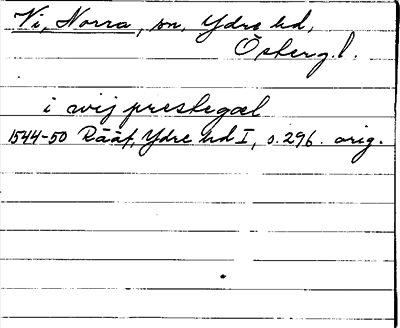 Vi, Norra, sn, Ydre hd,
Östergl.
i wij prestegæl
1544-50 Rääf, Ydre hd I, s. 296. orig.